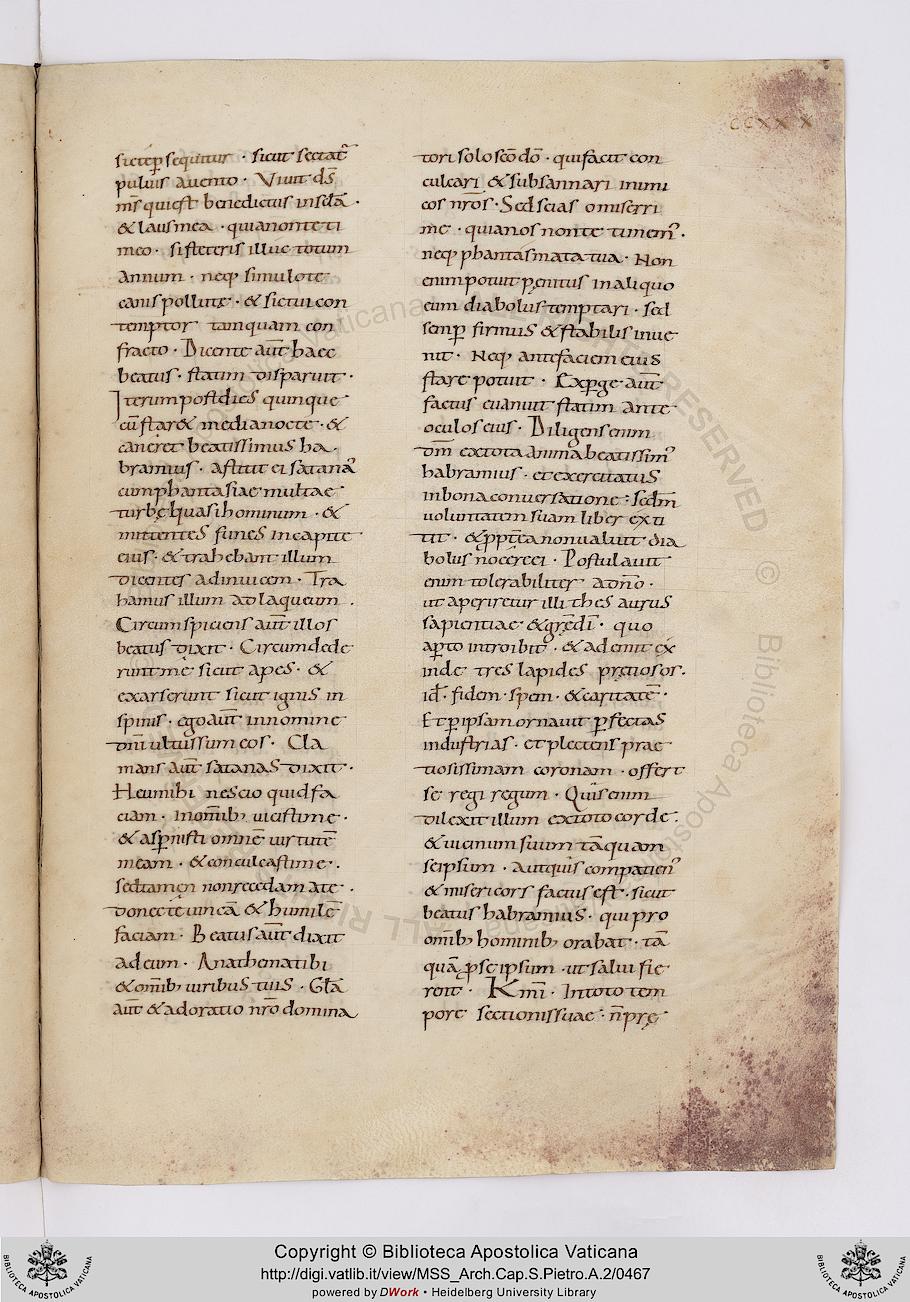 CCXXX
sicteꝑsequitur · sicut sectat᷑
puluis auento · Viuit ds̄
ms̄ quiest benedictus insc̄la ·
& laus mea · quia nonte ti
meo · sisteteris illuc totum
annum · neq; simulote
canis pollute · & sictui con
temptor tamquam con
fracto · Dicente aūt haec
beatus · statim disparuit ·
Iterum post dies quinque
cū star& medianocte · &
caneret beatissimus ha
bramius · astitit ei satanas
cum phantasiae multae
turbę quasi hominum · &
mittentes funes in capite
eius · & trahebant illum
dicentes adinuicem · Tra
hamus illum ad laqueum ·
Circumspiciens aūt illos
beatus dixit · Circumdede
runt me sicut apes · &
exarserunt sicut ignis in
spinis · ego aūt in nomine
dnī ultus sum eos · Cla
mans aūt satanas dixit ·
Heu mihi nescio quid fa
ciam · in omīb; uicisti me ·
& aspnisti omnē uirtutē
meam · & conculcasti me ·
sed tamen non recedam a te ·
donec te uincā & humilē
faciam · Beatus aūt dixit
ad eum · Anathema tibi
& omīb; uiribus tuis · Glā
aūt & adoratio nrō domina
tori solo scō dō · qui facit con
culcari & subsannari inimi
cos nrōs · Sed scias o miserri
me · quia nos non te timem᷒ ·
neq; phantasmata tua · Non
enim potuit penitus in aliquo
eum diabolus temptari · sed
semꝑ firmus & stabilis inue
nit · Neq; ante faciem eius
stare potuit · Exꝑge aūt
factus euanuit statim ante
oculos eius · Diligens enim
dm̄ ex tota anima beatissim᷒
habramius · et exercitatus
in bona conuersatione · scdm̄
uoluntatem suam liber exti
tit · & ꝓpterea non ualuit dia
bolus nocere ei · Postulauit
enim tolerabiliter a dnō ·
ut aperiretur illi thesaurus
sapientiae & gr̄e dī · quo
aꝑto introibit · & ademit ex
inde tres lapides pretiosos ·
id̄ · fidem · spem · & caritatē ·
Et ꝑ ipsam ornauit ꝑfectas
industrias · et plectens prae
tiosissimam coronam · offert
se regi regum · Quis enim
dilexit illum ex toto corde ·
& uicinum suum tāquam
se ipsum · aut quis compatien᷒
& misericors factus est · sicut
beatus habramius · qui pro
omīb; hominib; orabat · tā
quā ꝓ se ipsum · ut salui fie
rent · Kmī · In toto tem
pore sectionis suae · n̄ prę
Copyright © Biblioteca Apostolica Vaticana
http://digi.vatlib.it/view/MSS_Arch.Cap.S.Pietro.A.2/0467
powered by DWork • Heidelberg University Library
BIBLIOTECA APOSTOLICA VATICANA
BIBLIOTECA APOSTOLICA VATICANA